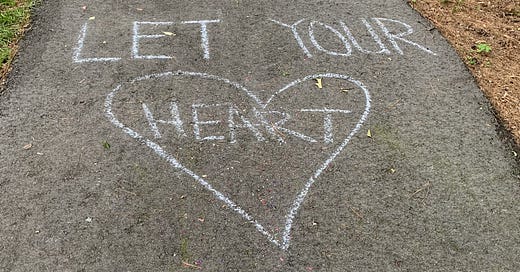 LET YOUR
HEART